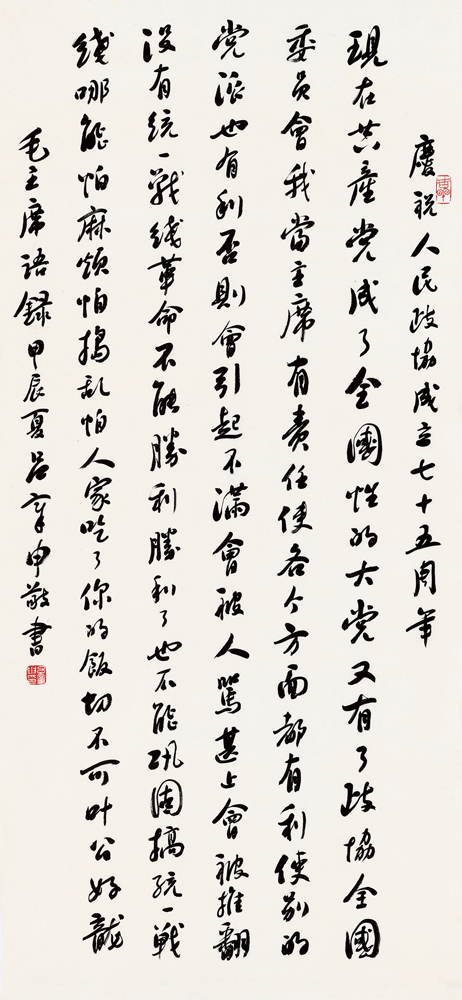 慶祝人民政協成立七十五周年
現在共產党成了全國性的大党又有了政協全國
委員會我當主席有責任使各个方面都有利使别的
党派也有利否則會引起不滿會被人罵甚至會被推翻
没有統一戰綫革命不能勝利勝利了也不能巩固搞統一戰
綫哪能怕麻煩怕搗乱怕人家吃了你的飯切不可叶公好龍
毛主席語録甲辰夏吕章申敬書